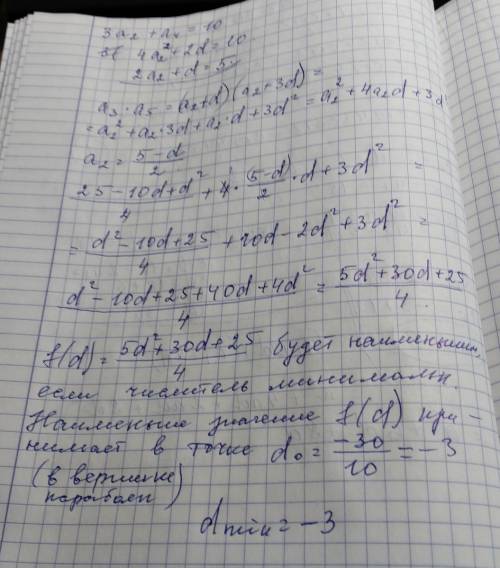 3a₂ + a₄ = 10
4a₂ + 2d = 10
2a₂ + d = 5
a₃ · a₅ = (a₂+d)(a₂+3d) =
= a₂² + a₂·3d + a₂·d + 3d² = a₂² + 4a₂d + 3d
a₂ = (5-d)/2
(25-10d+d²)/4 + 4·(5-d)/2·d + 3d² =
= (d²-10d+25)/4 + 10d - 2d² + 3d² =
(d²-10d+25+40d+4d²)/4 = (5d²+30d+25)/4
f(d) = (5d²+30d+25)/4 будет наименьшим,
если числитель минимальн.
Наименьше значение f(d) при-
нимает в точке d₀ = -30/10 = -3
(в вершине
параболы)
dmin = -3